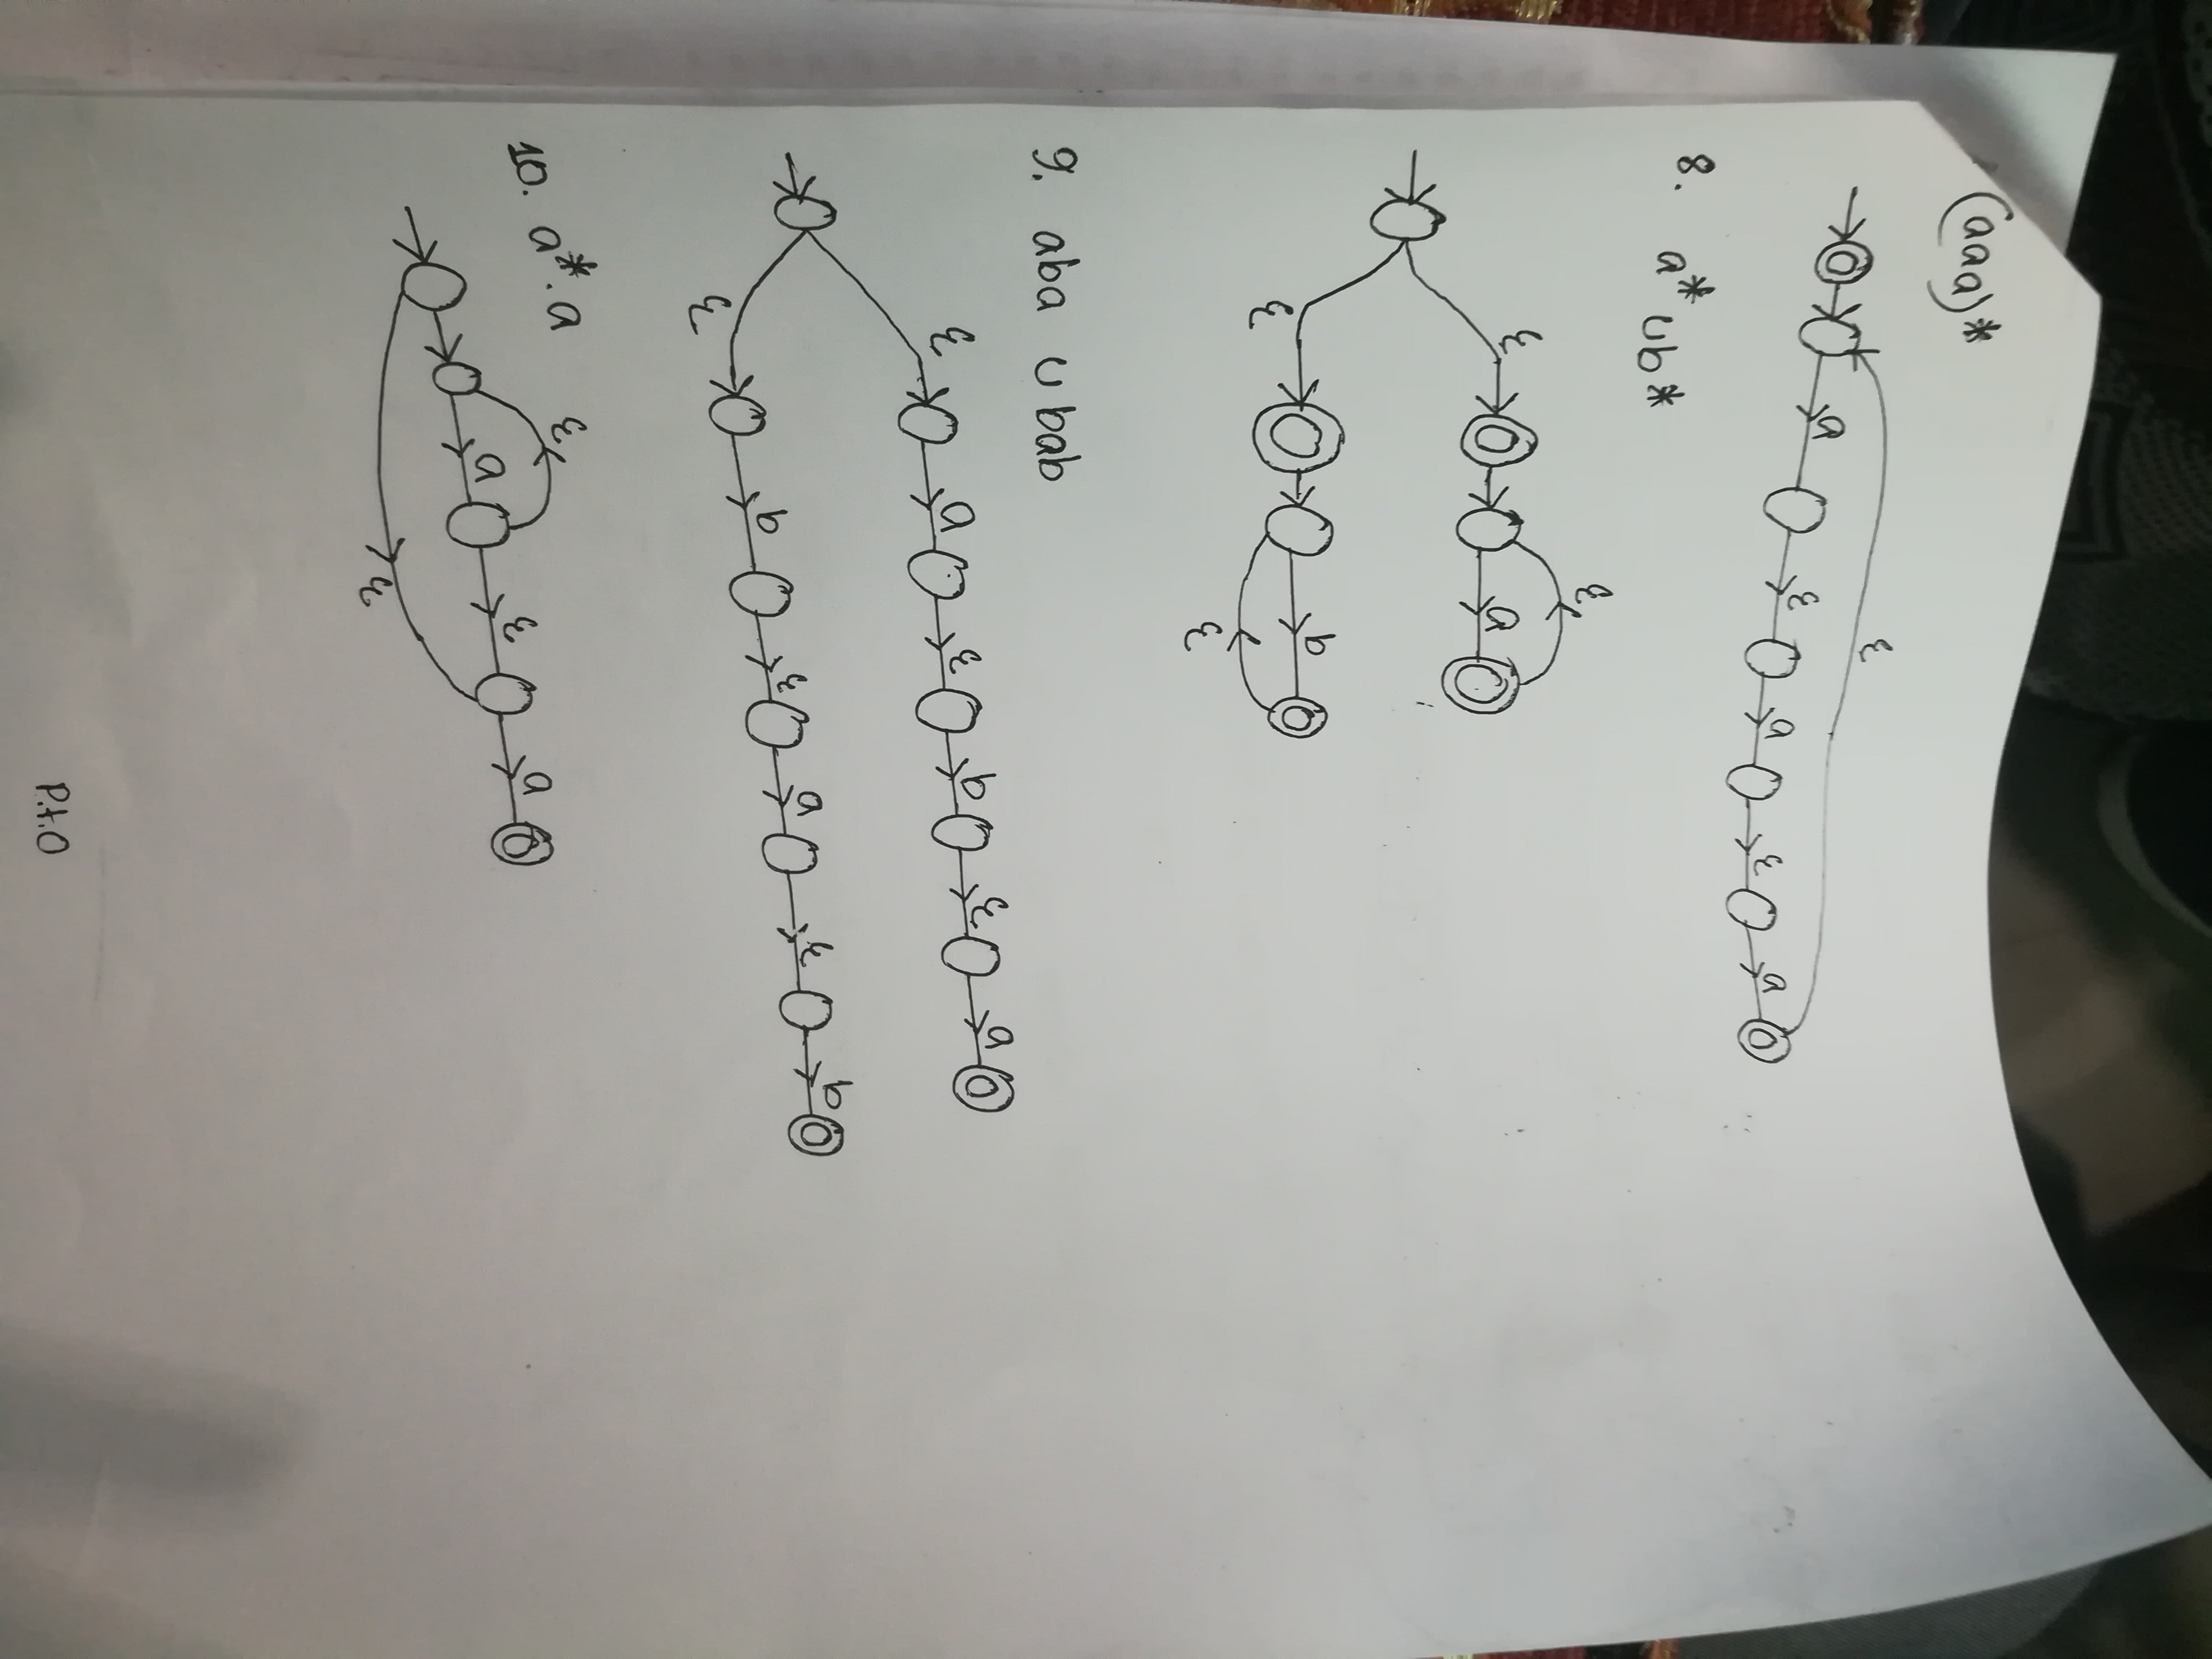 (aaa)*
ε
a ε a ε a
8. a* ∪ b*
ε
ε a
b
ε
ε
9. aba ∪ bab
ε a ε b ε a
ε b ε a ε b
10. a*.a
ε
a ε a
ε
P.t.O